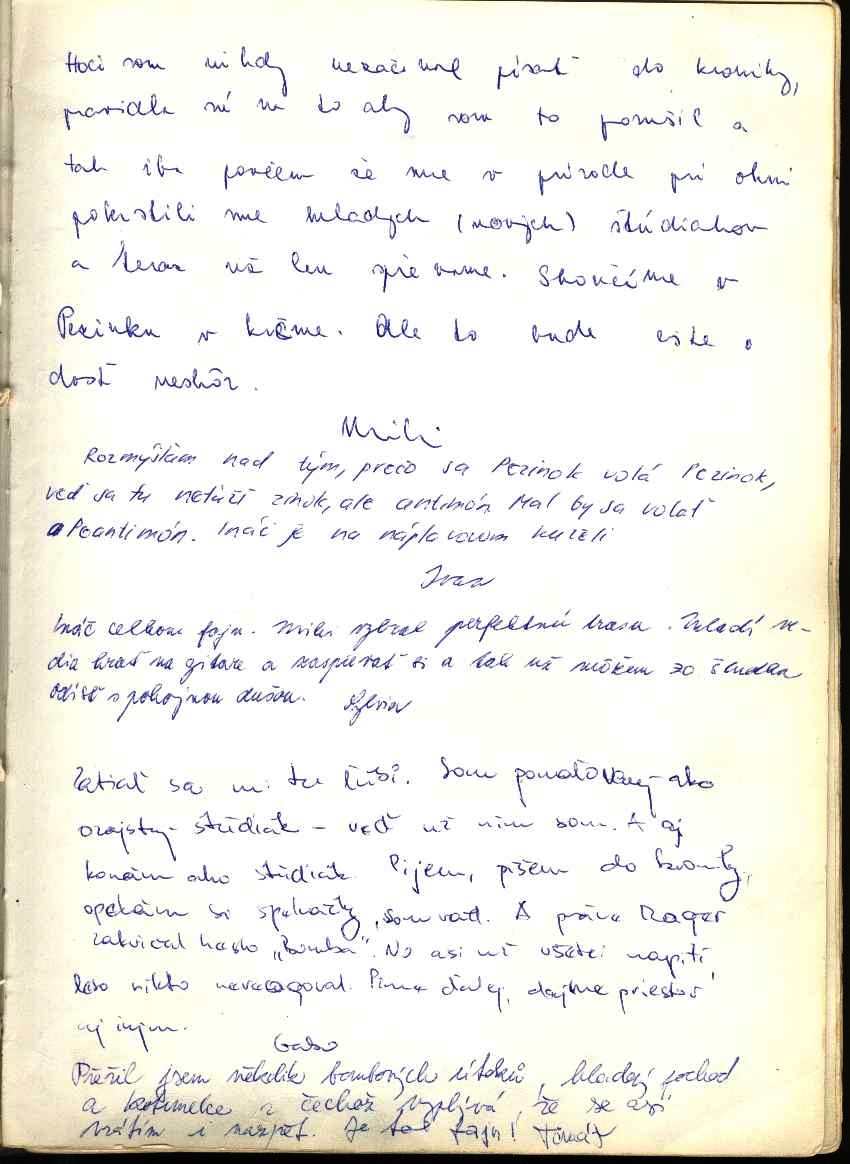 Hoci som nikdy nezačínal písať do kroniky,
pravidla sú na to aby som to porušil a
tak iba poviem že sme v prírode pri ohni
pokrstili sme mladých (nových) štúdiakov
a teraz už len spievame. Skončíme v
Pezinku v krčme. Ale to bude ešte o
dosť neskôr.
Miki
Rozmýšľam nad tým, prečo sa Pezinok volá Pezinok,
veď sa tu neťaží zinok, ale antimón. Mal by sa volať
Peantimón. Ináč je na náplavovom kuželi
Ivan
Ináč celkom fajn. Miki vybral perfektnú trasu. Mladí ve-
dia hrať na gitare a zaspievať si a tak už môžem zo
odísť s pokojnou dušou. Sylvia
Zatiaľ sa mi tu ľúbi. Som pomaľovaný ako
ozajstný študiák – veď už ním som. A aj
konám ako študiák. Pijem, píšem do kroniky,
opekám si špekačky, som rád. A práve Rager
zakričal heslo „Bomba". No asi už všetci napití
lebo nikto nereagoval. Píme ďalej, dajme priestor
aj iným.
Gabo
Přežil jsem několik bombových útoků, hladový pochod
a z čehož vyplývá, že se asi
vrátím i nazpět. Je to fajn! Tomáš